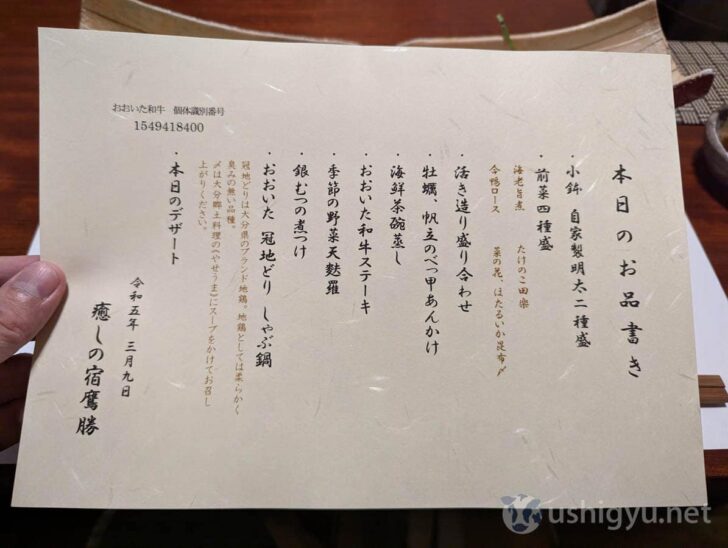 本日のお品書き
・小鉢　自家製明太二種盛
・前菜四種盛
海老旨煮　たけのこ田楽
合鴨ロース　菜の花、ほたるいか昆布〆
・活き造り盛り合わせ
・牡蠣、帆立のべっ甲あんかけ
・海鮮茶碗蒸し
・おおいた和牛ステーキ
・季節の野菜天麩羅
・銀むつの煮つけ
・おおいた　冠地どり　しゃぶ鍋
冠地どりは大分県のブランド地鶏。地鶏としては柔らかく
臭みの無い品種。
〆は大分郷土料理の(やせうま)にスープをかけてお召し
上がりください。
・本日のデザート
令和五年　三月九日
癒しの宿鷹勝
おおいた和牛　個体識別番号
1549418400
ushigyu.net